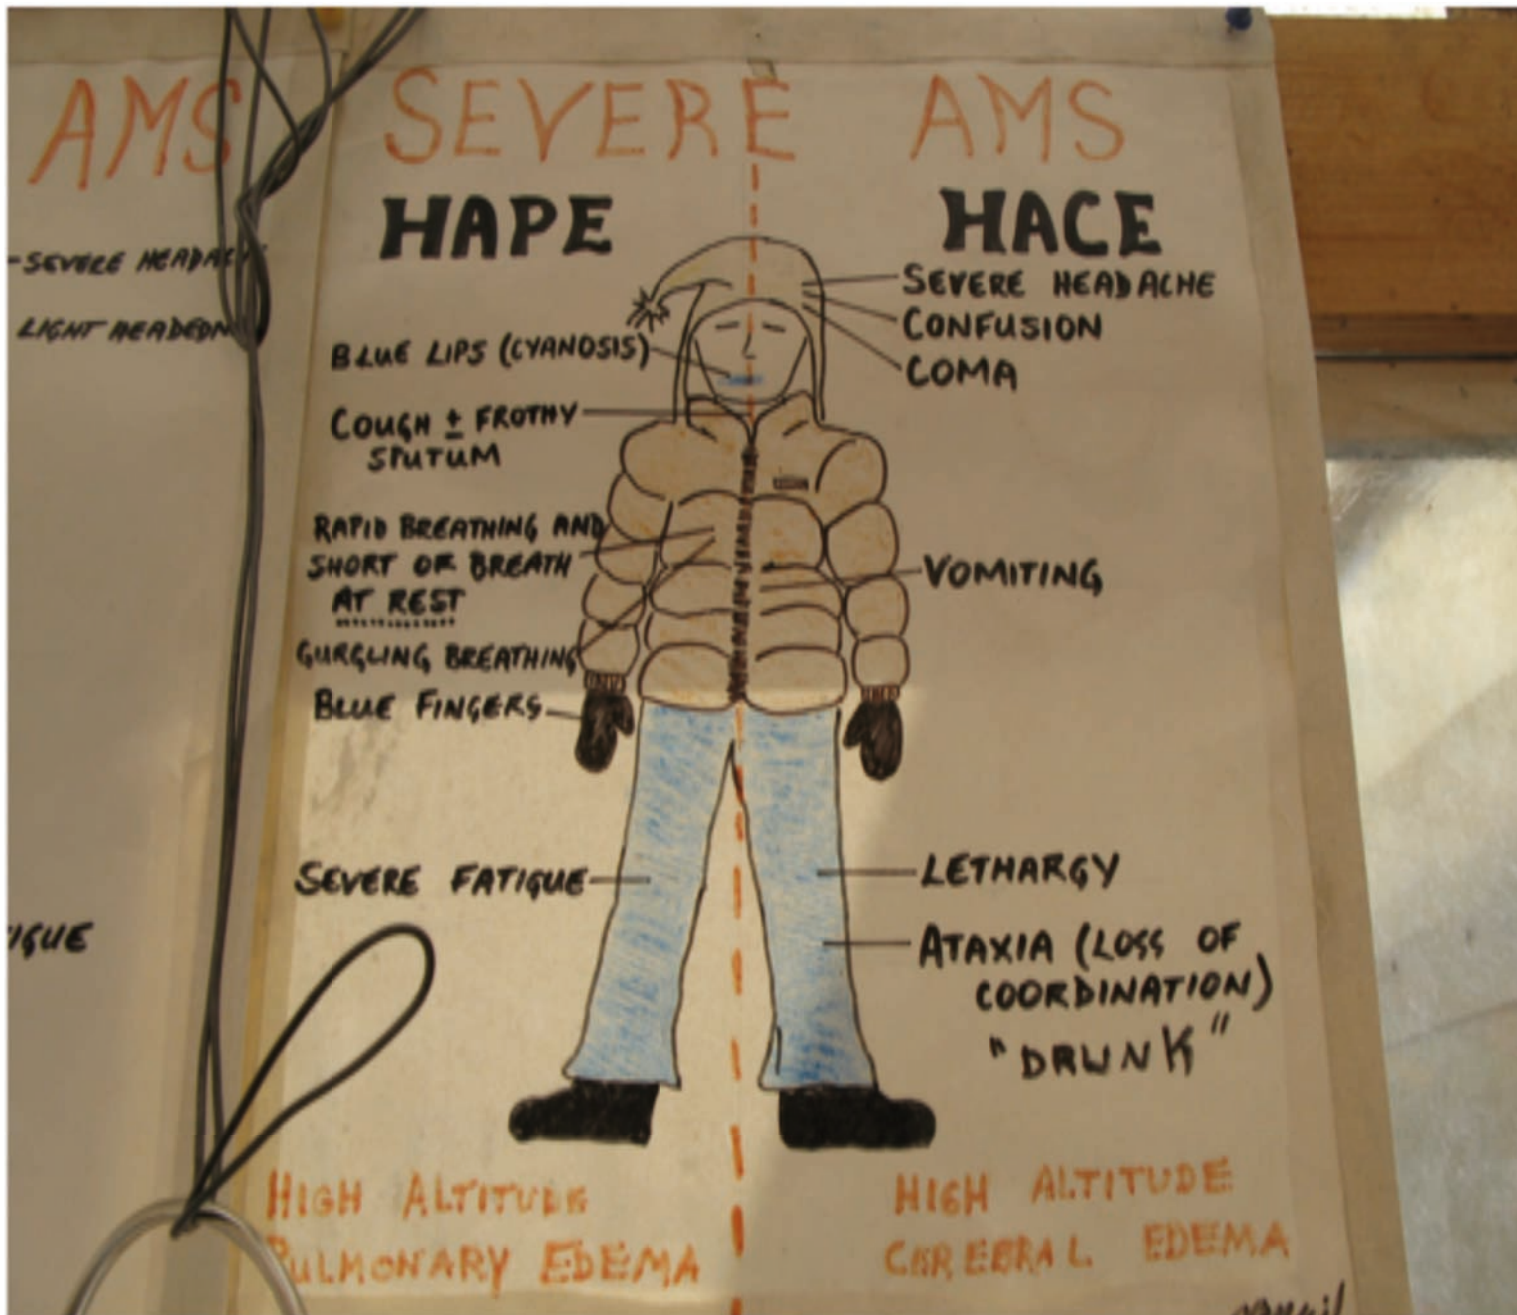 AMS
-SEVERE
LIGHT
SEVERE AMS
HAPE
BLUE LIPS (CYANOSIS)
COUGH ± FROTHY
SPUTUM
RAPID BREATHING AND
SHORT OF BREATH
AT REST
GURGLING BREATHING
BLUE FINGERS
SEVERE FATIGUE
HIGH ALTITUDE
PULMONARY EDEMA
HACE
SEVERE HEADACHE
CONFUSION
COMA
VOMITING
LETHARGY
ATAXIA (LOSS OF
COORDINATION)
"DRUNK"
HIGH ALTITUDE
CEREBRAL EDEMA